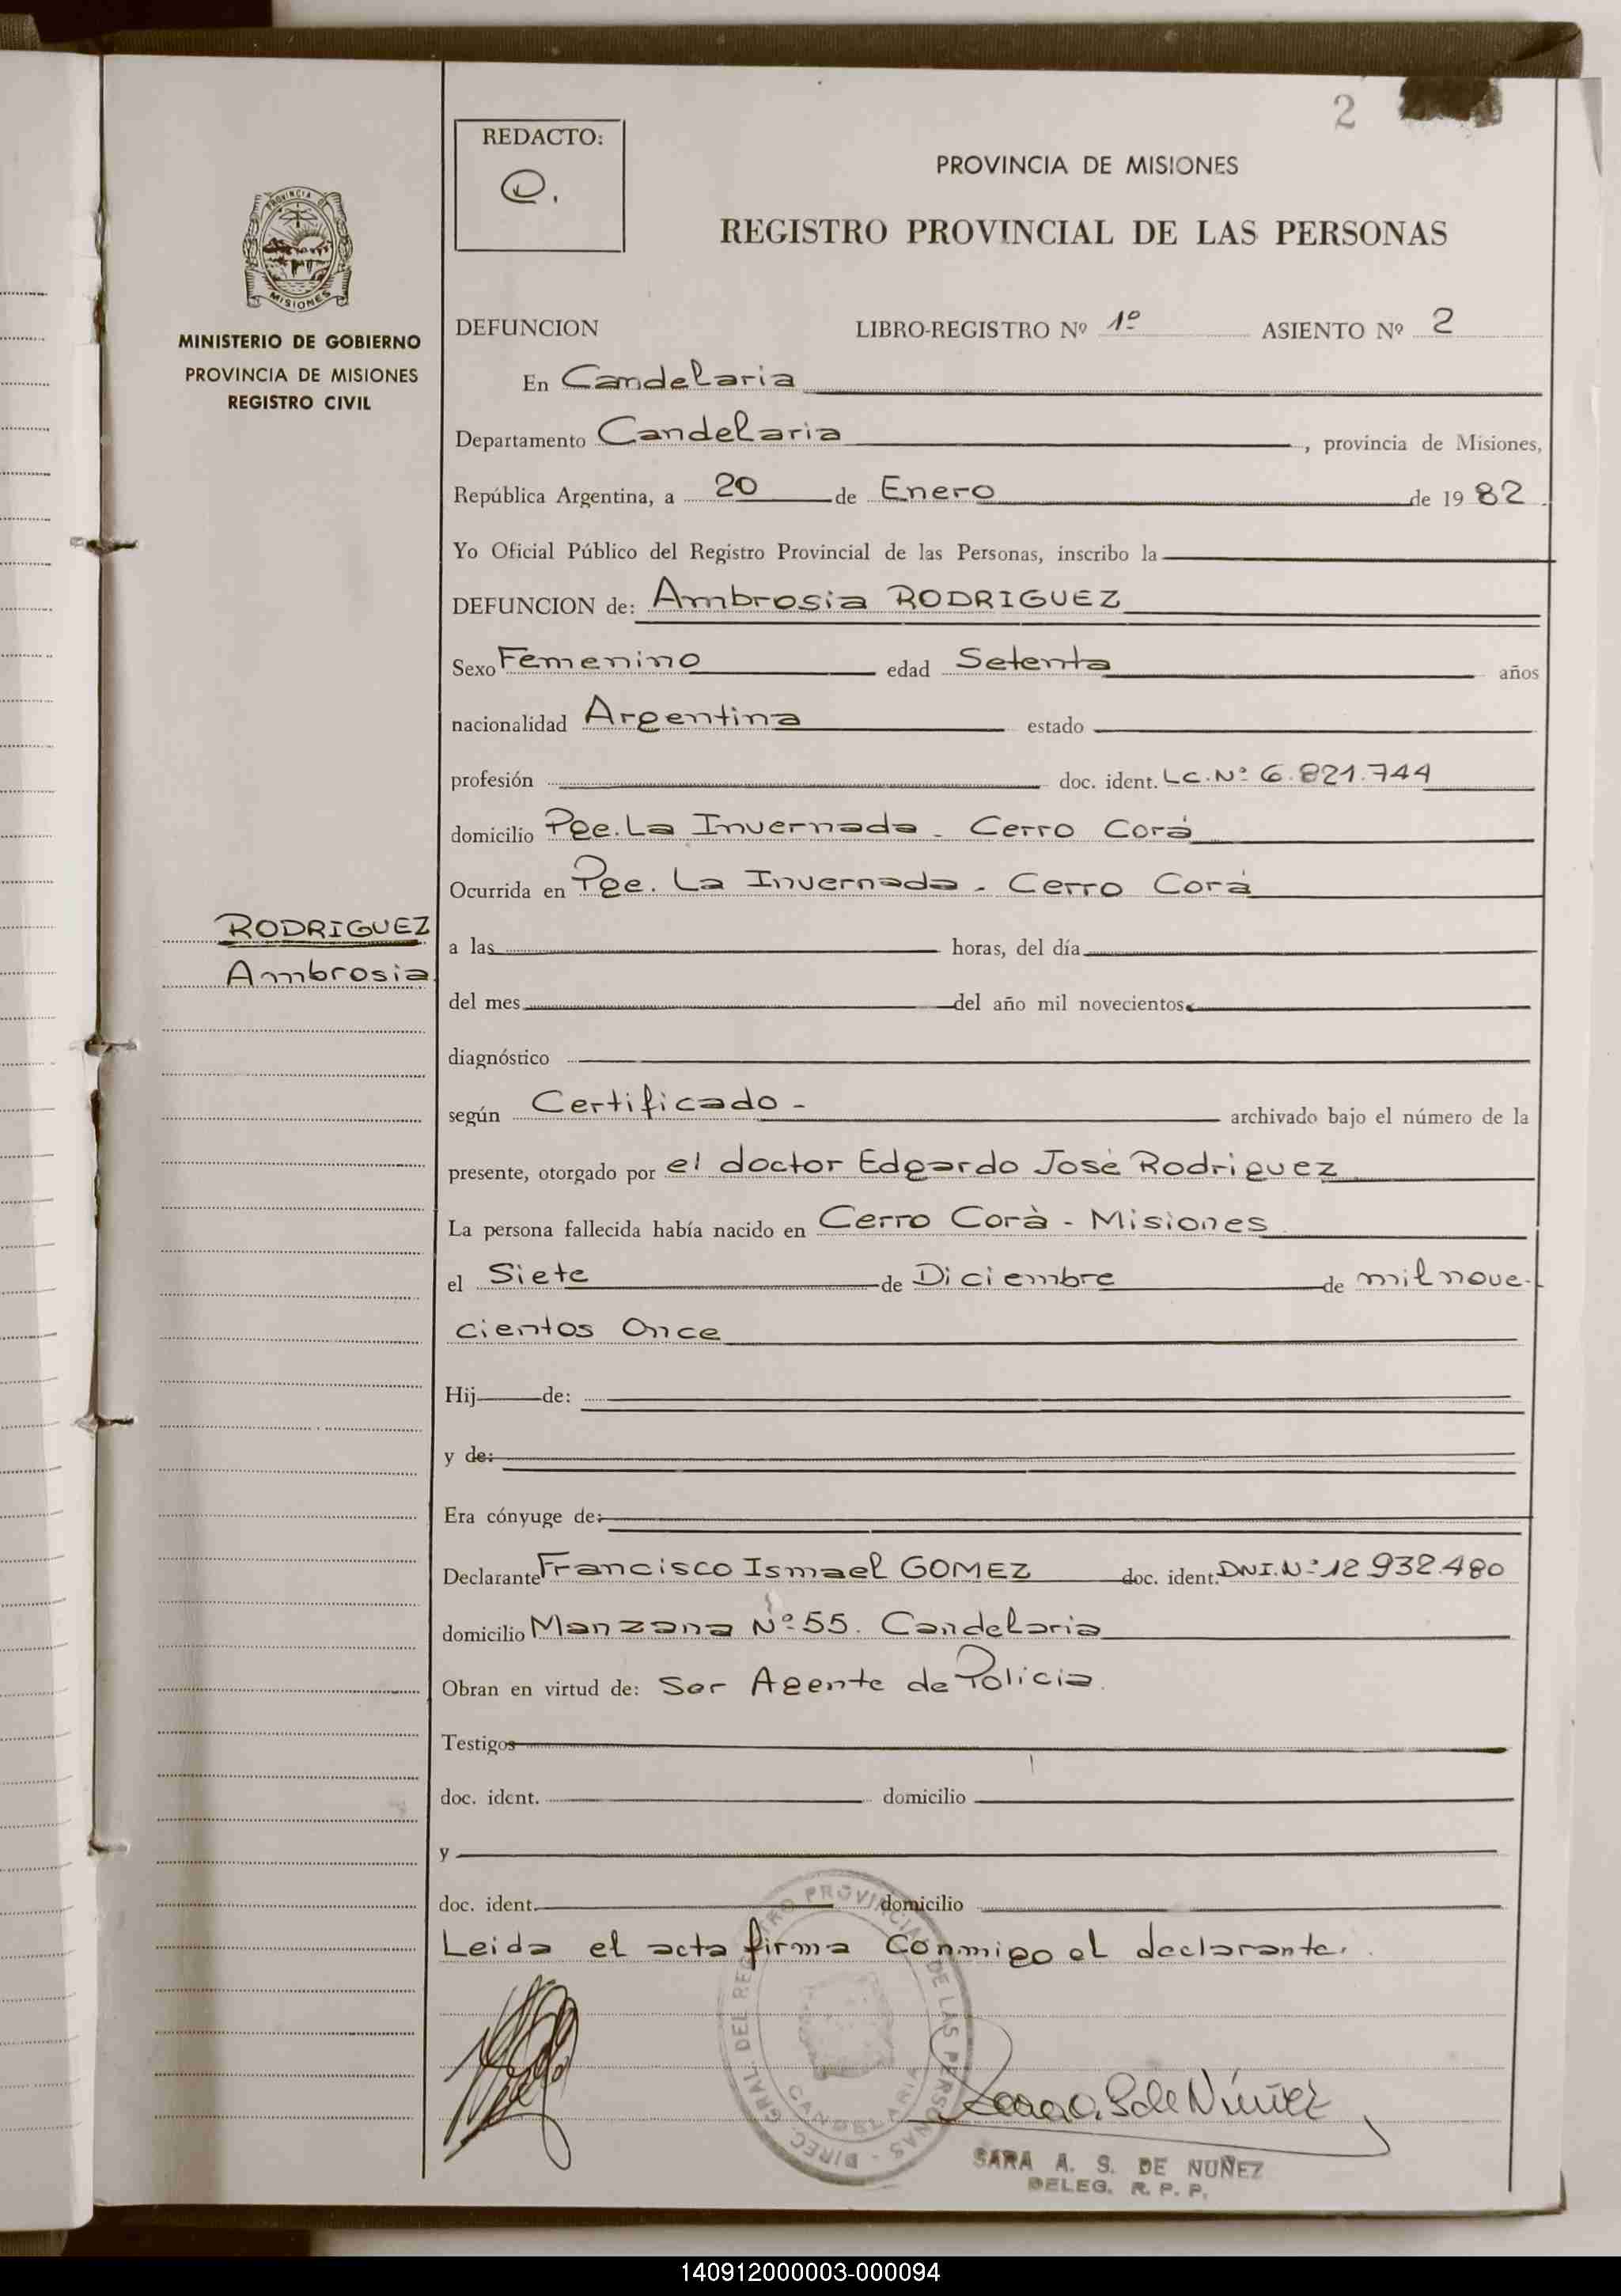 2
REDACTO:
PROVINCIA DE MISIONES
REGISTRO PROVINCIAL DE LAS PERSONAS
PROVINCIA DE
MISIONES
MINISTERIO DE GOBIERNO
PROVINCIA DE MISIONES
REGISTRO CIVIL
DEFUNCION LIBRO-REGISTRO Nº 1º ASIENTO Nº 2
En Candelaria
Departamento Candelaria, provincia de Misiones,
República Argentina, a 20 de Enero de 1982
Yo Oficial Público del Registro Provincial de las Personas, inscribo la
DEFUNCION de: Ambrosia RODRIGUEZ
Sexo Femenino edad Setenta años
nacionalidad Argentina estado
profesión doc. ident. LC. Nº 6.821.744
domicilio Pge. La Invernada - Cerro Corá
Ocurrida en Pge. La Invernada - Cerro Corá
RODRIGUEZ
Ambrosia
a las horas, del día
del mes del año mil novecientos
diagnóstico
según Certificado - archivado bajo el número de la
presente, otorgado por el doctor Edgardo José Rodriguez
La persona fallecida había nacido en Cerro Corà - Misiones
el Siete de Diciembre de mil nove-
cientos Once
Hij de:
y de:
Era cónyuge de:
Declarante Francisco Ismael GOMEZ doc. ident. DNI. Nº 12.932.480
domicilio Manzana Nº 55. Candelaria
Obran en virtud de: Ser Agente de Policia.
Testigos
doc. ident. domicilio
y
doc. ident. domicilio
Leida el acta firma conmigo el declarante.
DIREC. GRAL. DEL REGISTRO PROVINCIAL DE LAS PERSONAS
CANDELARIA
Sara A. S. de Núñez
SARA A. S. DE NUÑEZ
DELEG. R. P. P.
140912000003-000094